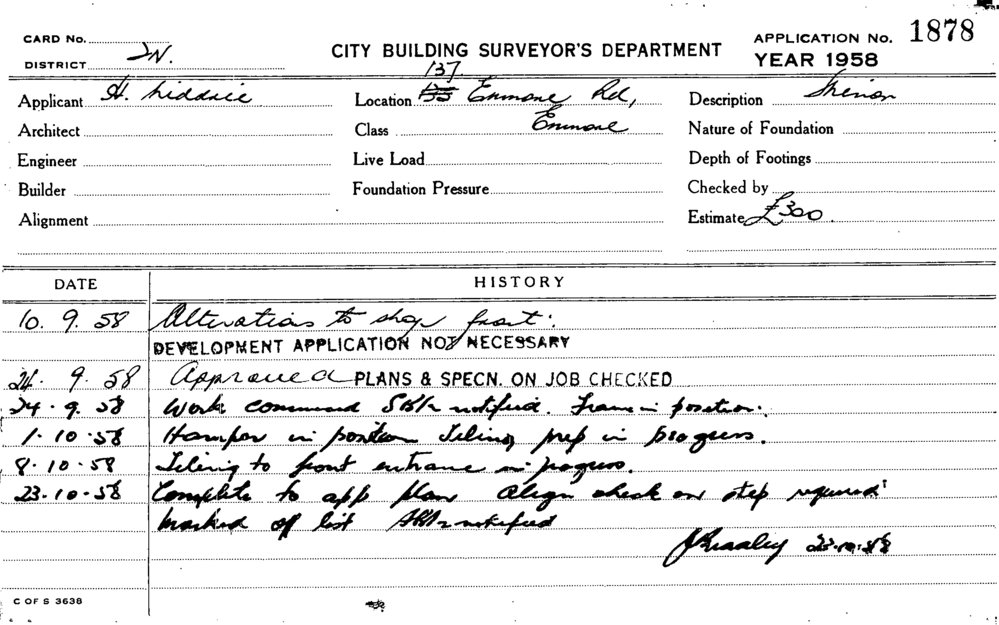 CARD No.
DISTRICT N.
CITY BUILDING SURVEYOR'S DEPARTMENT
APPLICATION No. 1878
YEAR 1958
137
Applicant H. Liddric
Location 135 Enmore Rd,
Description Minor
Architect
Class Enmore
Nature of Foundation
Engineer
Live Load
Depth of Footings
Builder
Foundation Pressure
Checked by
Alignment
Estimate £300
DATE
HISTORY
10. 9. 58 Alterations to shop front.
DEVELOPMENT APPLICATION NOT NECESSARY
24. 9. 58 Approved PLANS & SPECN. ON JOB CHECKED
24. 9. 58 Work commenced notified. Frame in position.
1. 10. 58 Hamper in position Tiling prep in progress.
8. 10. 58 Tiling to front entrance in progress.
23. 10. 58 Complete to app plan Align check on step required
marked off list notified
23.10.58
C OF S 3638